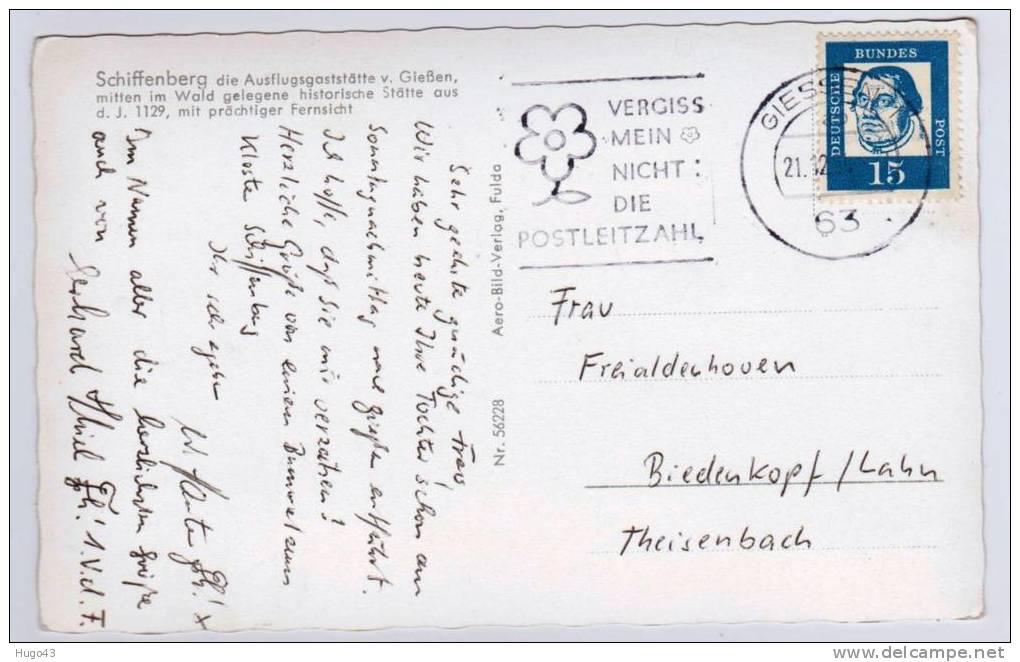 Schiffenberg die Ausflugsgaststätte v. Gießen,
mitten im Wald gelegene historische Stätte aus
d. J. 1129, mit prächtiger Fernsicht
Sehr geehrte gnädige Frau,
Wir haben heute Ihre Tochter schon am
Sonntagnachmittag nach Gießen entführt.
Ich hoffe, daß Sie mir verzeihen!
Herzliche Grüße von einem Bummel zum
Kloster Schiffenberg
Ihr sehr
Im Namen aller die herzlichsten Grüße
auch von
Gerhard Thiel
Nr. 56228 Aero-Bild-Verlag, Fulda
VERGISS
MEIN
NICHT:
DIE
POSTLEITZAHL
GIESSEN
21.12.
63
DEUTSCHE
BUNDES
POST
15
Frau
Freialdenhoven
Biedenkopf/Lahn
Theisenbach
Hugo43
delcampe.net